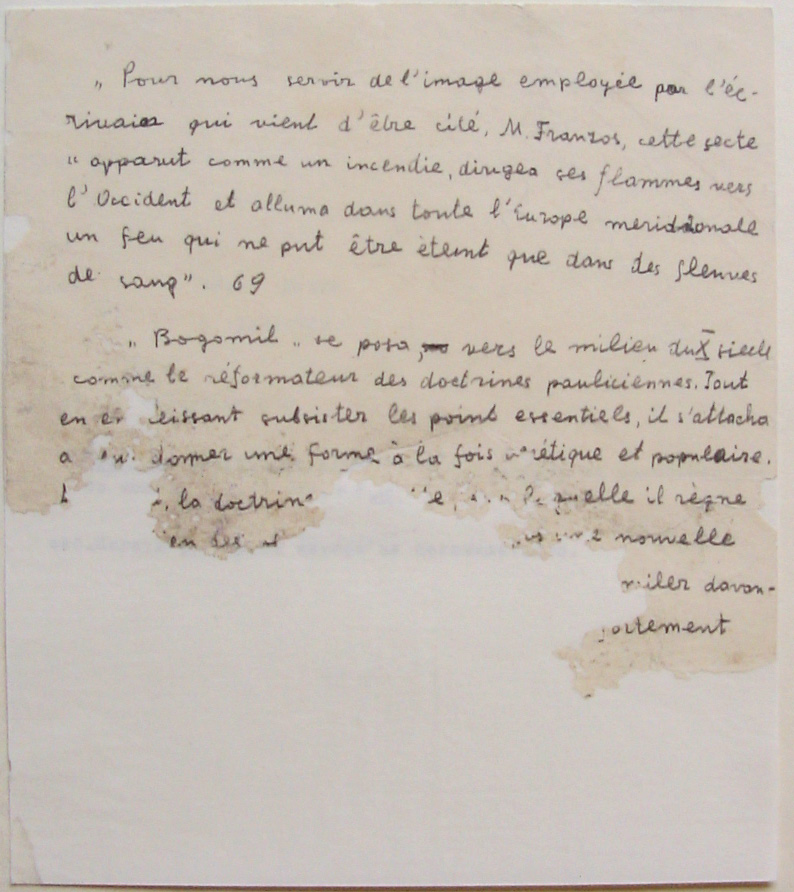 „ Pour nous servir de l'image employée par l'éc-
rivain qui vient d'être cité, M. Franzos, cette secte
" apparut comme un incendie, dirigea ses flammes vers
l'Occident et alluma dans toute l'Europe meridionale
un feu qui ne put être éteint que dans des fleuves
de sang". 69
„ Bogomil „ se posa, vers le milieu du X siecle
comme le réformateur des doctrines pauliciennes. Tout
en laissant subsister les point essentiels, il s'attacha
a donner une forme à la fois et populaire.
la doctrine laquelle il règne
en nouvelle
davan-